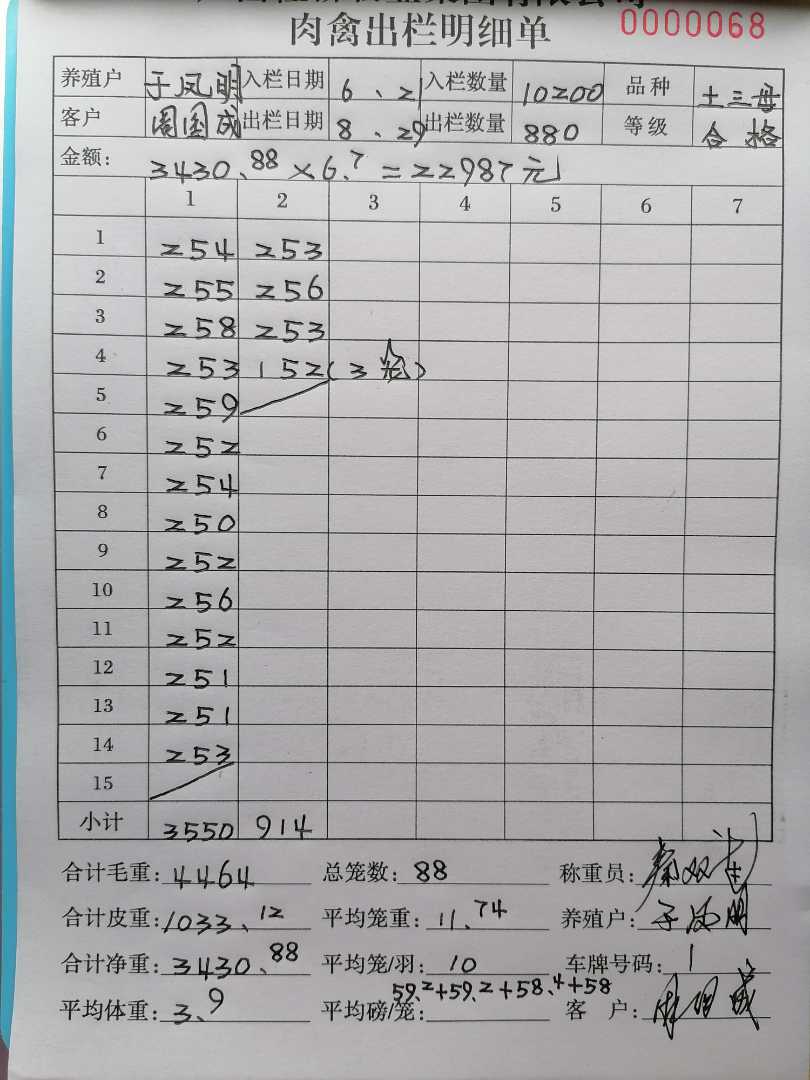 肉禽出栏明细单 0000068
养殖户 于凤明 入栏日期 6、21 入栏数量 10200 品种 土三母
客户 周国成 出栏日期 8、29 出栏数量 880 等级 合格
金额: 3430.88×6.7=22987元
1 2 3 4 5 6 7
1 254 253
2 255 256
3 258 253
4 253 152(3笼)
5 259
6 252
7 254
8 250
9 252
10 256
11 252
12 251
13 251
14 253
15
小计 3550 914
合计毛重: 4464 总笼数: 88 称重员:
合计皮重: 1033.12 平均笼重: 11.74 养殖户: 于凤明
合计净重: 3430.88 平均笼/羽: 10 车牌号码: 1
平均体重: 3.9 平均磅/笼: 59.2+59.2+58.4+58 客户: